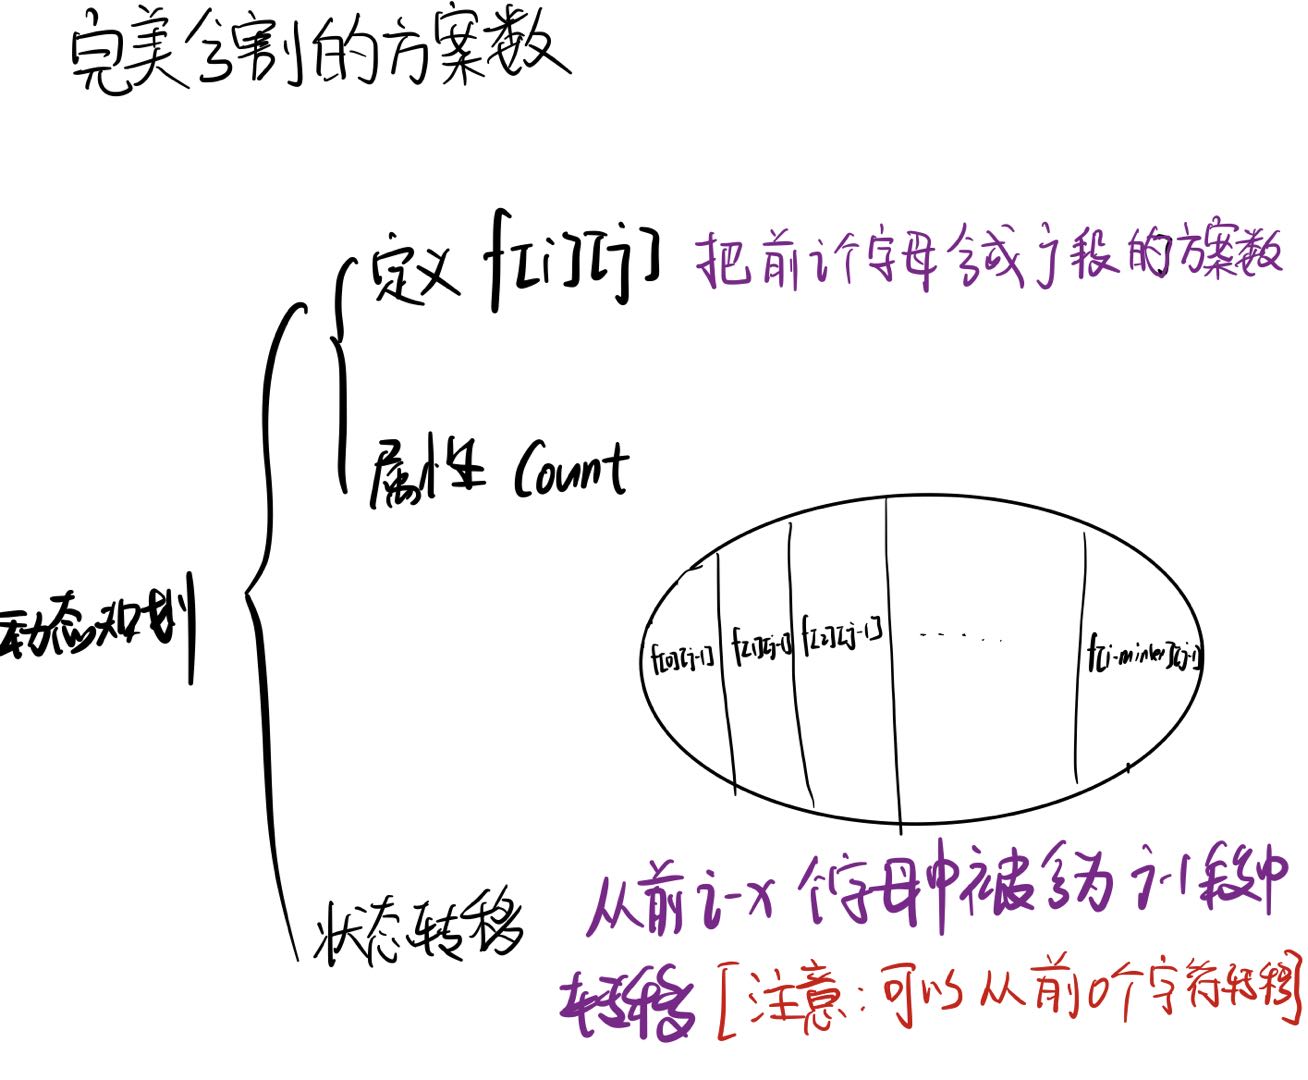 完美分割的方案数
定义 f[i][j] 把前i个字母分成j段的方案数
属性 Count
动态规划
f[0][j-1] f[1][j-1] f[2][j-1] ...... f[i-minlen][j-1]
状态转移 从前i-x个字母中被分为j-1段中
转移[注意:可以从前0个字符转移]